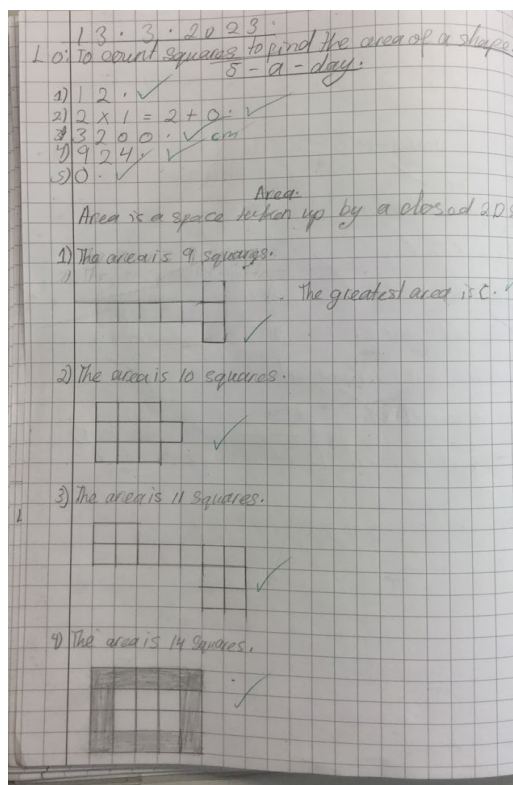 13.3.2023.
Lo: To count squares to find the area of a shape.
5-a-day.
1) 12.
2) 2 x 1 = 2 + 0.
3) 3200. cm
4) 924.
5) 0.
Area.
Area is a space taken up by a closed 2D
1) The area is 9 squares.
The greatest area is C.
2) The area is 10 squares.
3) The area is 11 squares.
4) The area is 14 squares.